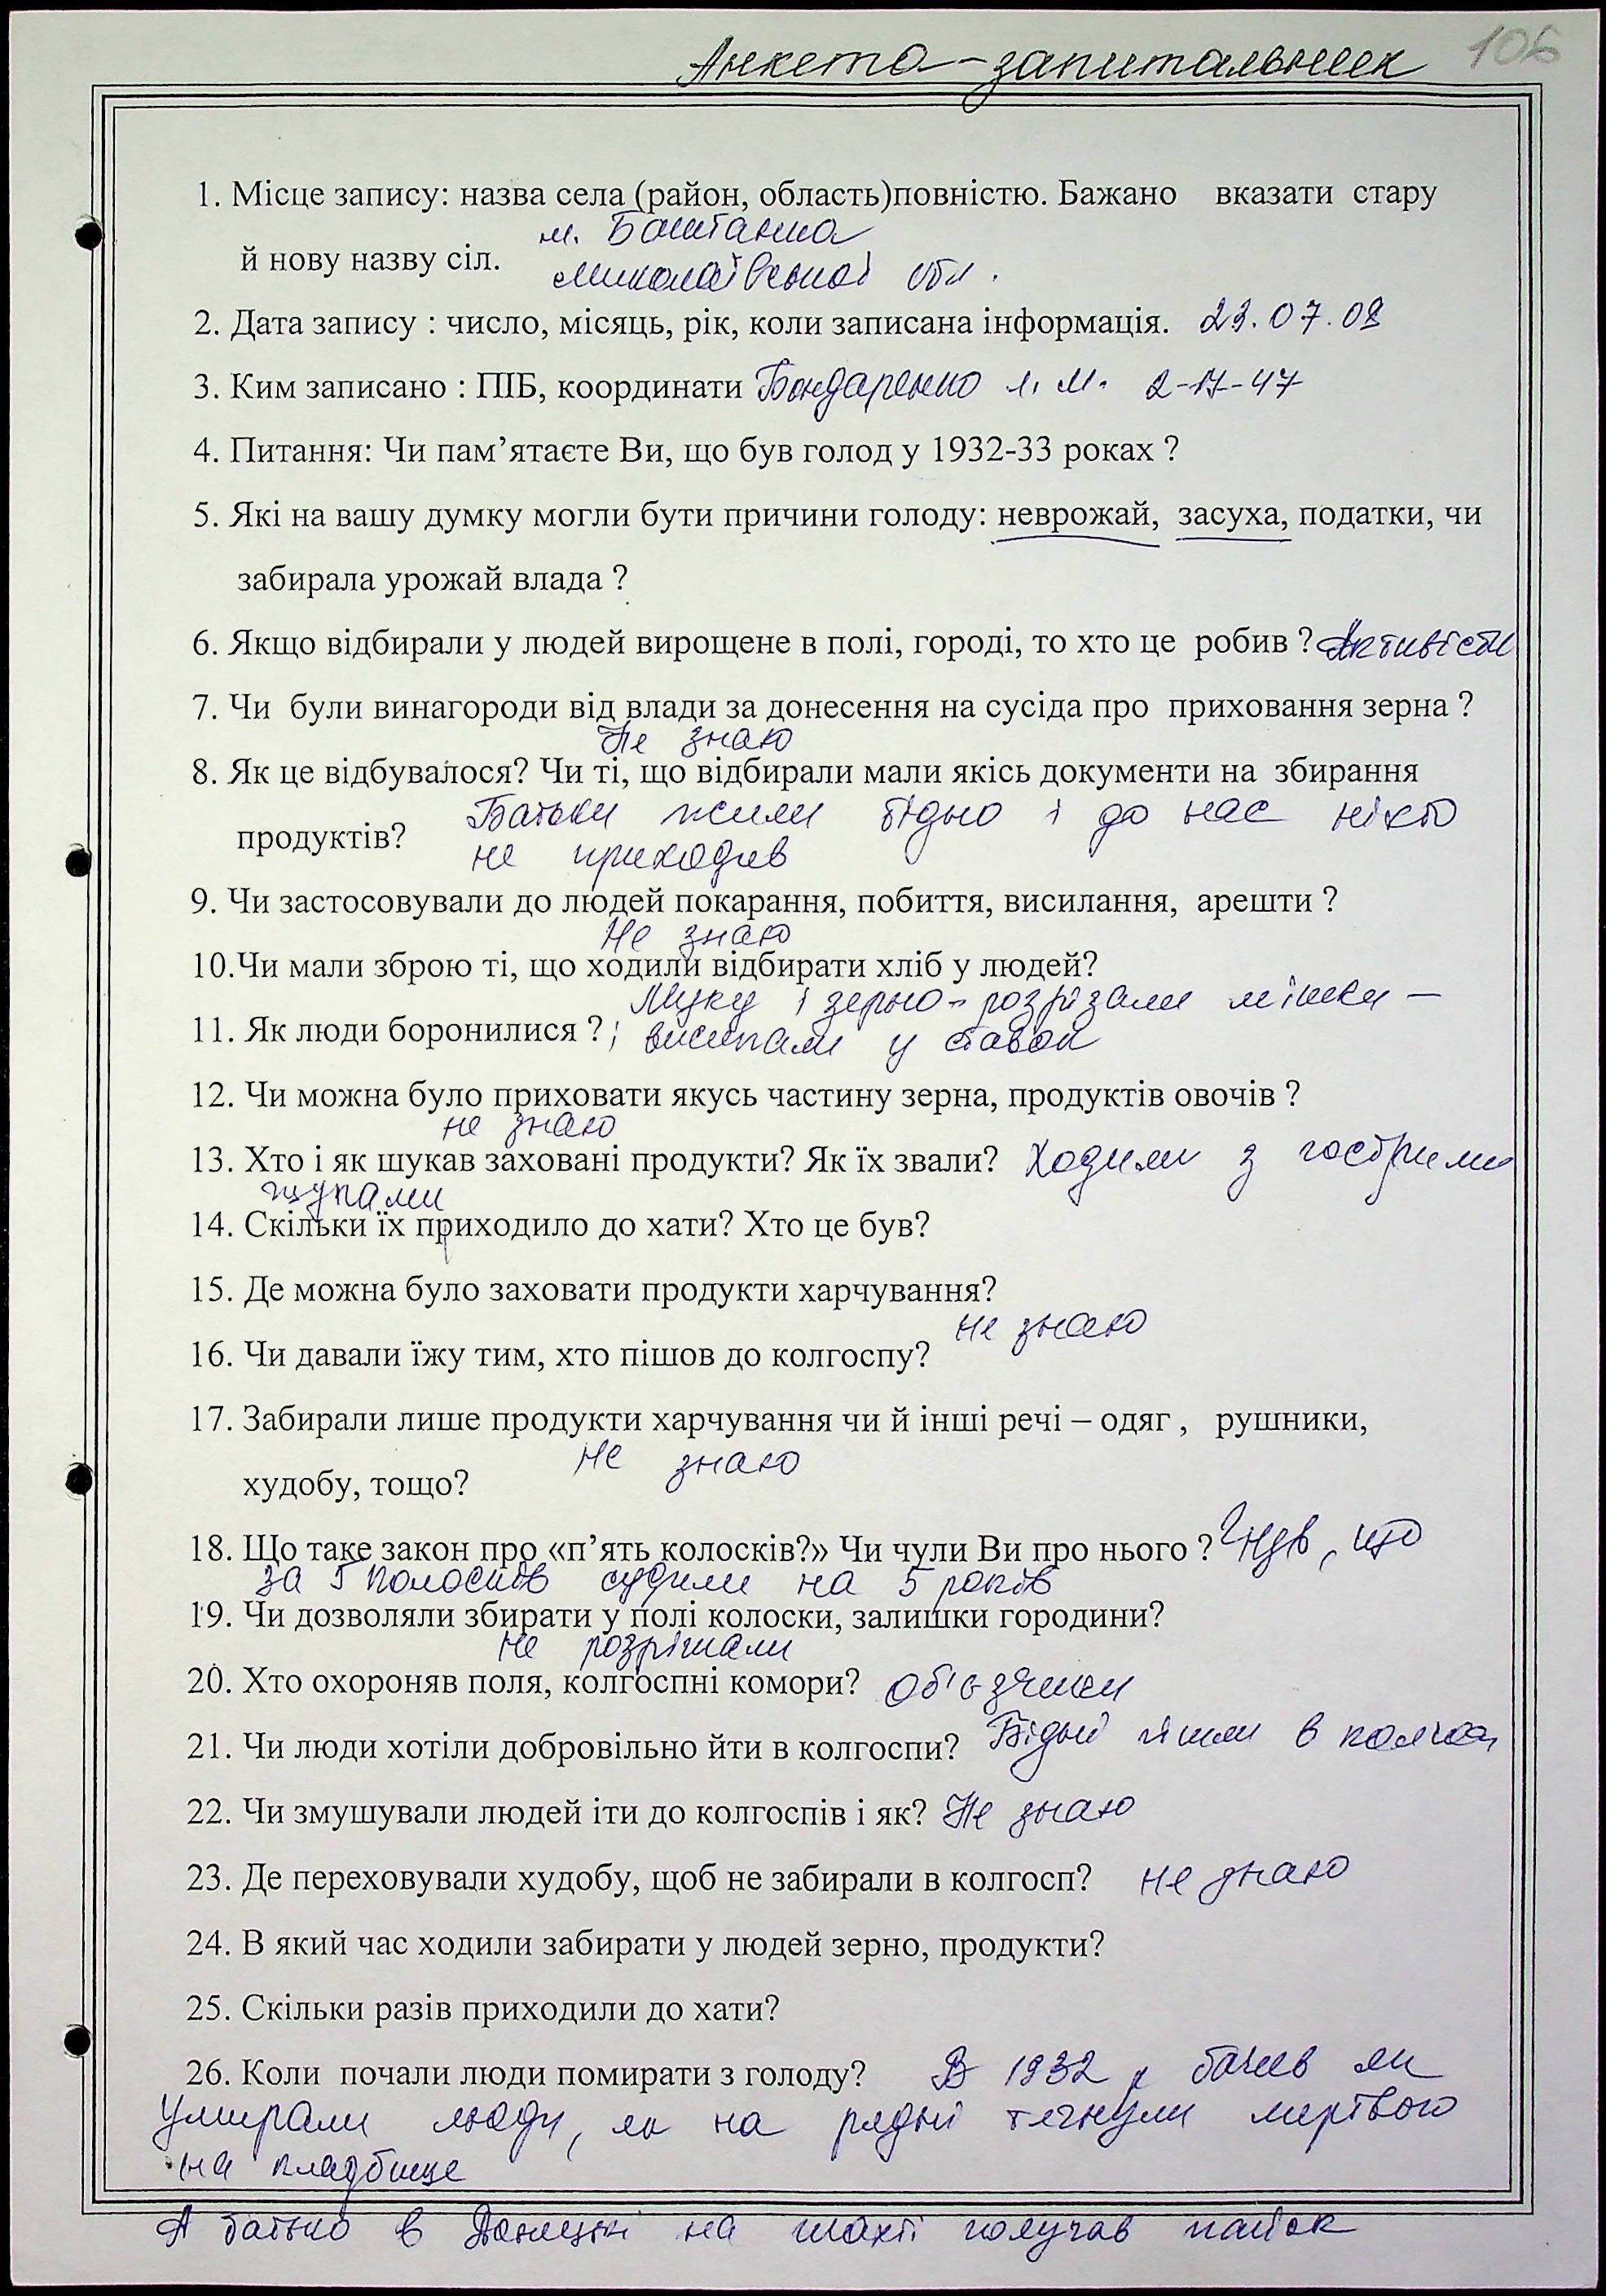 Анкета-запитальник 106
1. Місце запису: назва села (район, область)повністю. Бажано вказати стару
м. Баштанка
й нову назву сіл.
Миколаївської обл.
2. Дата запису : число, місяць, рік, коли записана інформація. 23.07.08
3. Ким записано : ПІБ, координати Бондаренко Л. М. 2-17-47
4. Питання: Чи пам’ятаєте Ви, що був голод у 1932-33 роках ?
5. Які на вашу думку могли бути причини голоду: неврожай, засуха, податки, чи
забирала урожай влада ?
6. Якщо відбирали у людей вирощене в полі, городі, то хто це робив ? Активісти
7. Чи були винагороди від влади за донесення на сусіда про приховання зерна ?
Не знаю
8. Як це відбувалося? Чи ті, що відбирали мали якісь документи на збирання
Батьки жили бідно і до нас ніхто
продуктів?
не приходив
9. Чи застосовували до людей покарання, побиття, висилання, арешти ?
Не знаю
10.Чи мали зброю ті, що ходили відбирати хліб у людей?
Муку і зерно - розрізали мішки –
11. Як люди боронилися ? ; висипали у ставок
12. Чи можна було приховати якусь частину зерна, продуктів овочів ?
не знаю
13. Хто і як шукав заховані продукти? Як їх звали? Ходили з гострими
щупами
14. Скільки їх приходило до хати? Хто це був?
15. Де можна було заховати продукти харчування?
не знаю
16. Чи давали їжу тим, хто пішов до колгоспу?
17. Забирали лише продукти харчування чи й інші речі – одяг , рушники,
Не знаю
худобу, тощо?
18. Що таке закон про «п’ять колосків?» Чи чули Ви про нього ? Чув, що
за 5 колосків судили на 5 років
19. Чи дозволяли збирати у полі колоски, залишки городини?
не розрішали
20. Хто охороняв поля, колгоспні комори? об'їзчики
21. Чи люди хотіли добровільно йти в колгоспи? Бідні йшли в колгосп
22. Чи змушували людей іти до колгоспів і як? Не знаю
23. Де переховували худобу, щоб не забирали в колгосп? не знаю
24. В який час ходили забирати у людей зерно, продукти?
25. Скільки разів приходили до хати?
26. Коли почали люди помирати з голоду? В 1932 р бачив як
умирали люди, як на рядні тягнули мертвого
на кладбище
А батько в Донецьку на шахті получав пайок